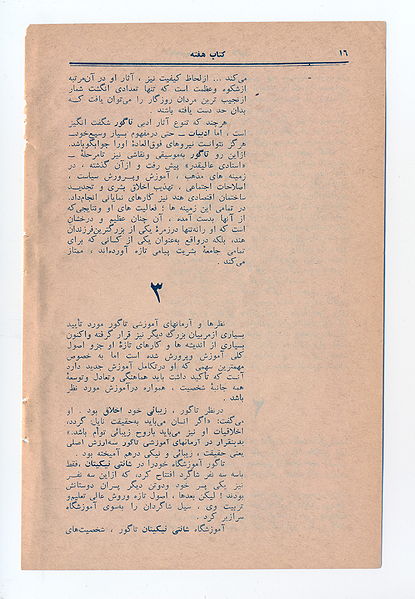 ۱۶
کتاب هفته
می‌کند ... ازلحاظ کیفیت نیز ، آثار او در آن‌مرتبه
ازشکوه وعظمت است که تنها تعدادی انگشت شمار
ازنجیب ترین مردان روزگار را می‌توان یافت کـه
بدان حد دست یافته باشند .
هرچند که تنوع آثار ادبی تاگور شگفت انگیز
است ، اما ادبیات ـ حتی درمفهوم بسیار وسیع‌خود ـ
هرگز نتوانست نیروهای فوق‌العادهٔ اورا جوابگوباشد.
ازاین رو تاگور به‌موسیقی ونقاشی نیز تامرحلهٔ ـ
«استادی عالیقدر» پیش رفت و ازآن گذشته ، در
زمینه های مذهب ، آموزش وپـرورش سیاست ،
اصلاحات اجتماعی ، تهذیب اخلاق بشری و تجدیـد
ساختمان اقتصادی هند نیز کارهای نمایانی انجام‌داد.
در تمامی این زمینه ها ؛ فعالیت های او ونتایجی‌که
از آنها بدست‌آمده ، آن چنان عظیم و درخشان
است که او رانه‌تنها درزمرهٔ یکی از بزرگترین‌فرزندان
هند، بلکه درواقع به‌عنوان یکی از کسانی که برای
تمامی جامعهٔ بشریت پیامی تازه آورده‌اند ، ممتاز
می‌کند .
۳
نظرها و آرمانهای آموزشی تاگور مورد تأیید
بسیاری ازمربیان بزرگ دیگر نیز قرار گرفته واکنون
بسیاری از اندیشه ها و کارهای تازهٔ او جزو اصول
کلی آموزش وپرورش شده است اما به خصوص
مهمترین سهمی که او درتکامل آموزش جدید دارد
آنست که تأکید داشت باید هماهنگی وتعادل وتوسعهٔ
همه جانبهٔ شخصیت ، همواره درآموزش مورد نظر
باشد .
درنظر تاگور ، زیبائی خود اخلاق بود . او
می‌گفت: «اگر انسان می‌باید به‌حقیقت نایل گردد،
اخلاقیات او نیز می‌باید باروح زیبائی توأم باشد.»
بدینقرار در آرمانهای آموزشی تاگور سه‌ارزش اصلی
یعنی حقیقت ، زیبائی و نیکی درهم آمیخته بود .
تاگور آموزشگاه خودرا در شانتی نیکیتان ،فقط
باسه نفر شاگرد افتتاح کرد، که ازاین سه نفـر
نیز یکی پسر خود ودوتن دیگر پسران دوستانش
بودند ؛ لیکن بعدها ، اصول تازه وروش عالی تعلیم‌و
تربیت وی ، سیل شاگردان را به‌سوی آموزشگاه
سرازیر کرد .
آموزشگاه شانتی نیکیتان تاگور ، شخصیت‌های